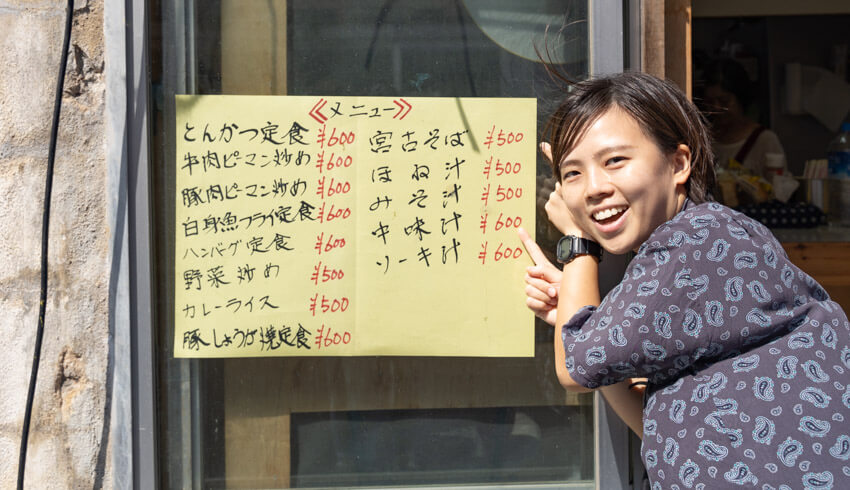 《メニュー》
とんかつ定食 ¥600
牛肉ピーマン炒め ¥600
豚肉ピーマン炒め ¥600
白身魚フライ定食 ¥600
ハンバーグ定食 ¥600
野菜炒め ¥500
カレーライス ¥500
豚しょうが焼定食 ¥600
宮古そば ¥500
ほね汁 ¥500
みそ汁 ¥500
中味汁 ¥600
ソーキ汁 ¥600